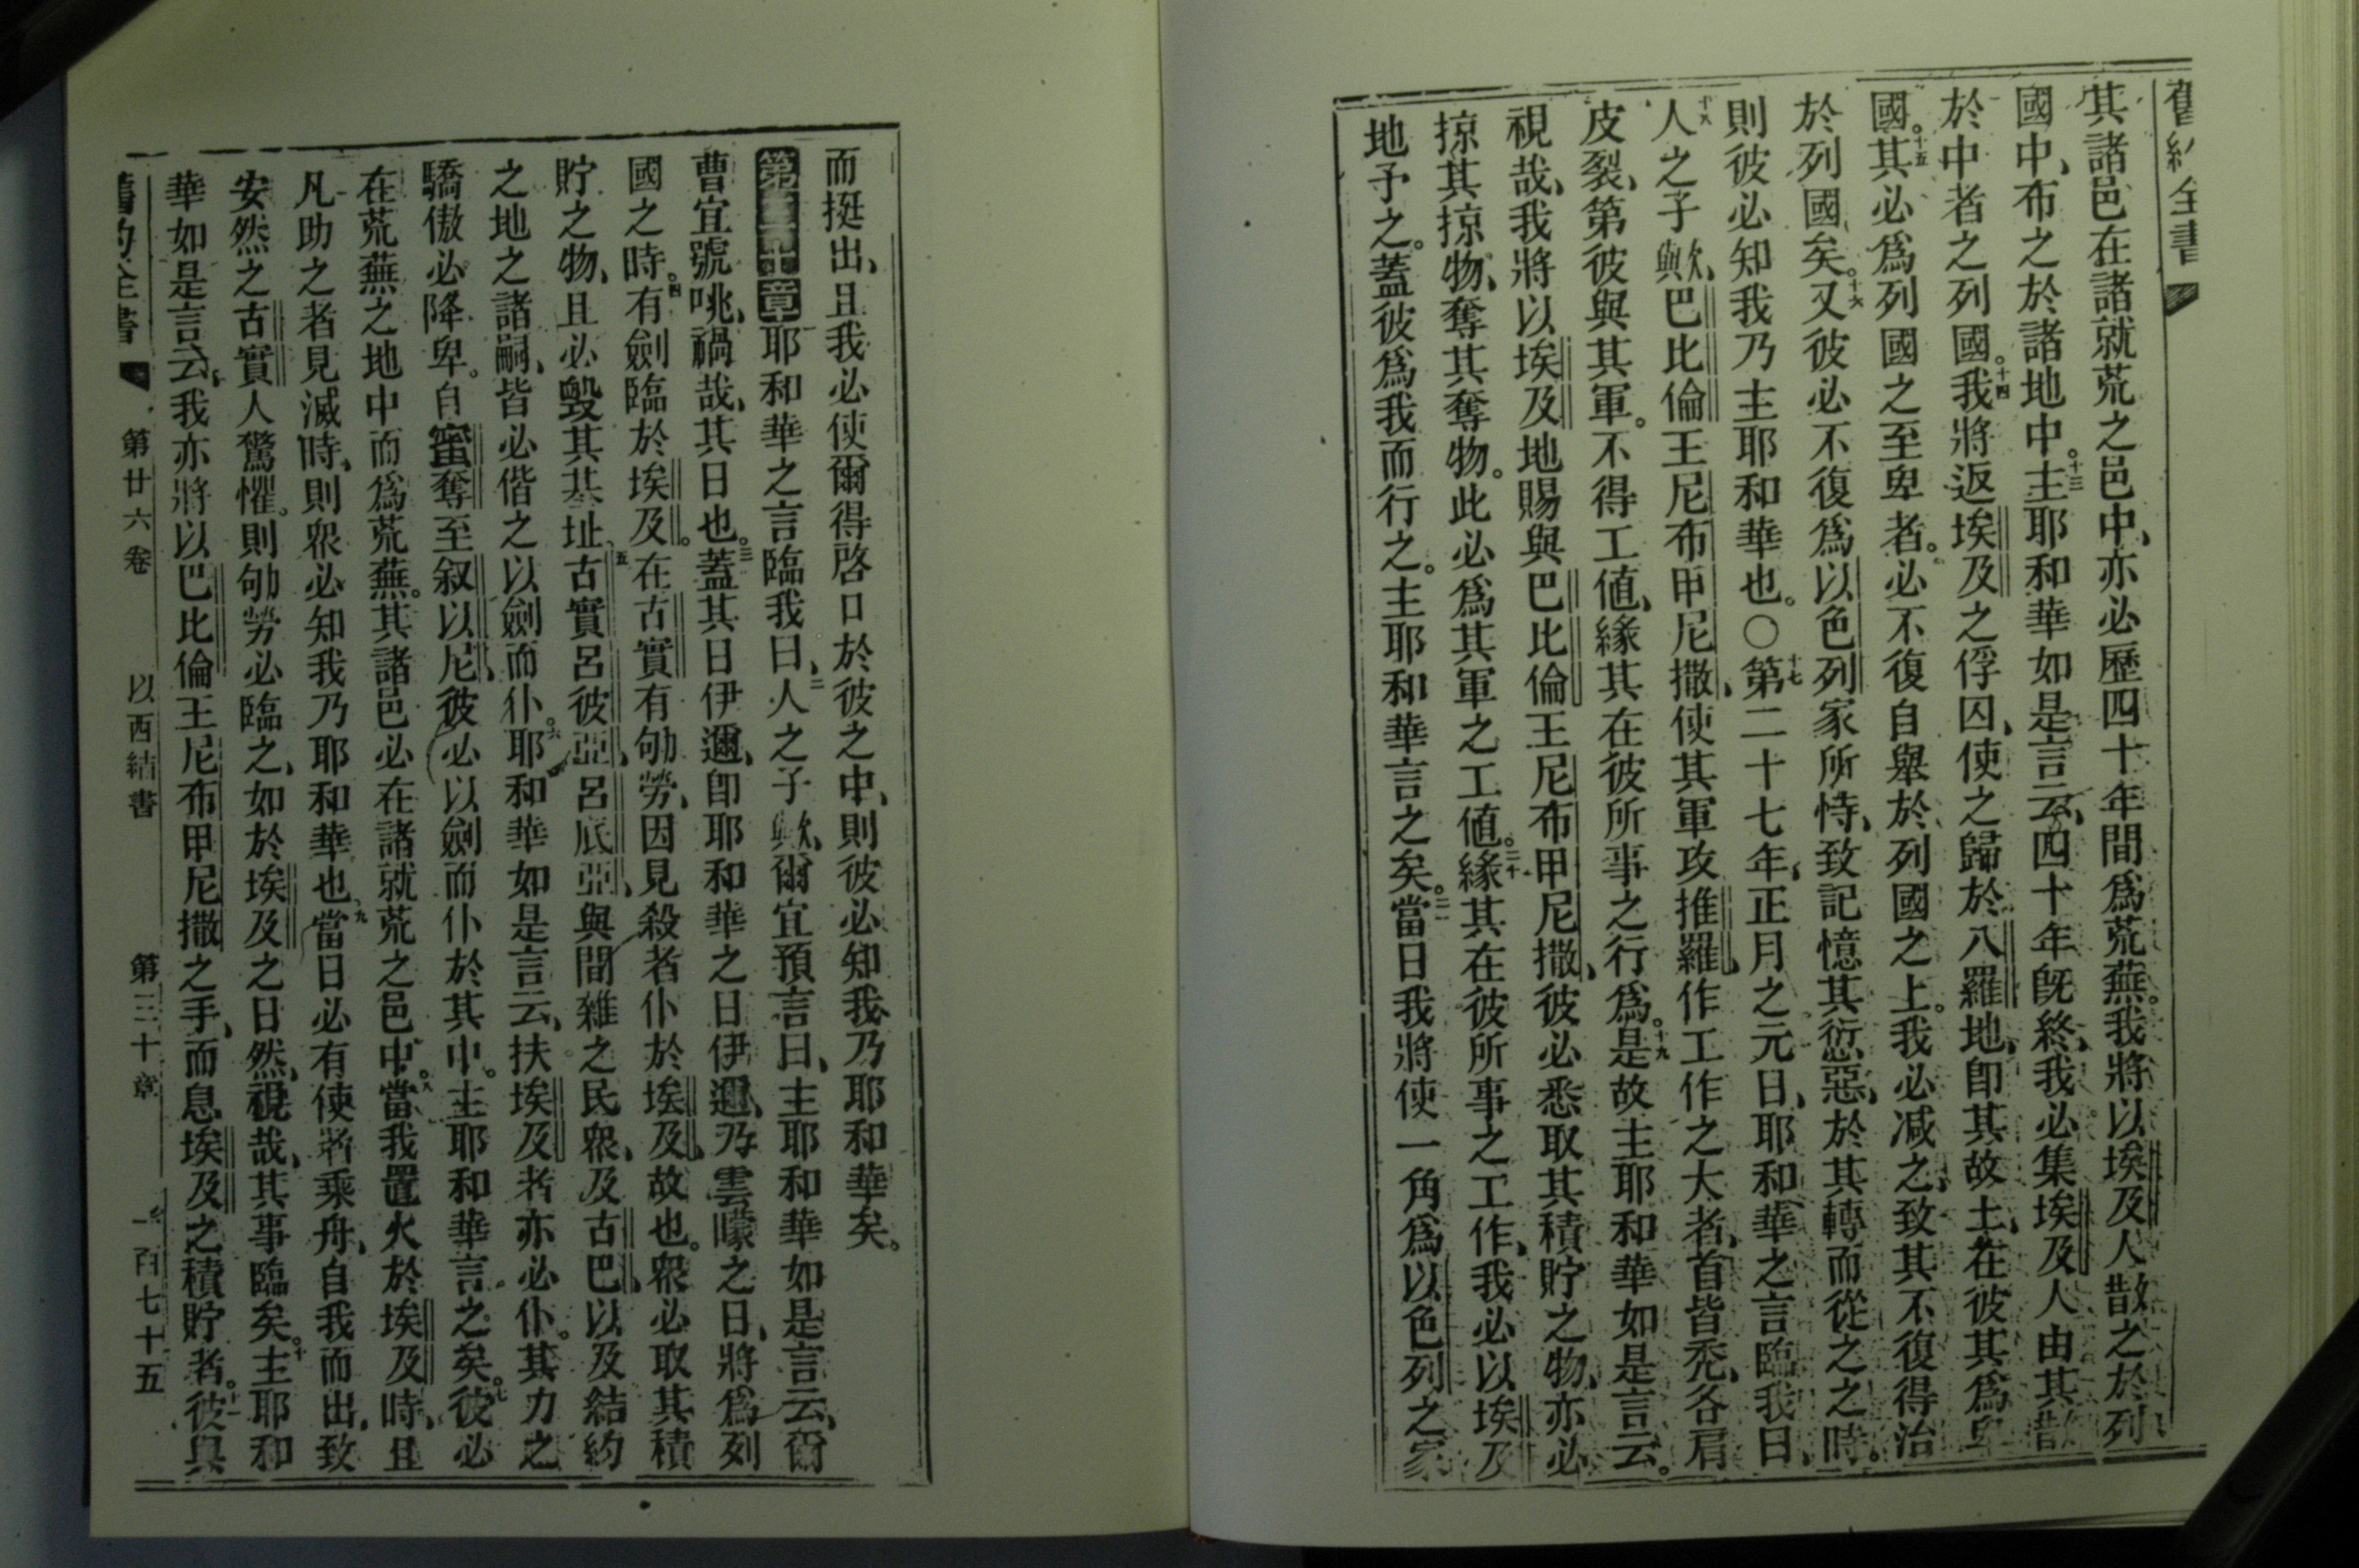 舊約全書
其諸邑在諸就荒之邑中、亦必歷四十年間爲荒蕪。我將以埃及人散之於列
國中、布之於諸地中。十三主耶和華如是言云、四十年旣終、我必集埃及人由其散
於中者之列國。十四我將返埃及之俘囚、使之歸於八羅地、卽其故土、在彼其爲卑
國。十五其必爲列國之至卑者。必不復自舉於列國之上。我必減之、致其不復得治
於列國矣。十六又彼必不復爲以色列家所恃、致記憶其愆惡、於其轉而從之之時。
則彼必知我乃主耶和華也。○十七第二十七年、正月之元日、耶和華之言臨我曰、
十八人之子歟、巴比倫王尼布甲尼撒、使其軍攻推羅、作工作之大者、首皆禿、各肩
皮裂、第彼與其軍。不得工値、緣其在彼所事之行爲。十九是故主耶和華如是言云。
視哉、我將以埃及地賜與巴比倫王尼布甲尼撒、彼必悉取其積貯之物、亦必
掠其掠物、奪其奪物。此必爲其軍之工値。二十緣其在彼所事之工作、我必以埃及
地予之。蓋彼爲我而行之。主耶和華言之矣。二一當日我將使一角爲以色列之家
而挺出、且我必使爾得啓口於彼之中、則彼必知我乃耶和華矣。
第三十章耶和華之言臨我曰、二人之子歟、爾宜預言曰、主耶和華如是言云、爾
曹宜號咷、禍哉、其日也。三蓋其日伊邇、卽耶和華之日伊邇、乃雲曚之日、將爲列
國之時。四有劍臨於埃及。在古實有劬勞、因見殺者仆於埃及故也。衆必取其積
貯之物、且必毀其基址、五古實呂彼亞、呂底亞、與間雜之民衆、及古巴、以及結約
之地之諸嗣、皆必偕之以劍而仆。六耶和華如是言云、扶埃及者亦必仆。其力之
驕傲必降卑。自蜜奪至叙以尼、彼必以劍而仆於其中。主耶和華言之矣。七彼必
在荒蕪之地中而爲荒蕪。其諸邑必在諸就荒之邑中。八當我置火於埃及時、且
凡助之者見滅時、則衆必知我乃耶和華也、九當日必有使者乘舟、自我而出、致
安然之古實人驚懼。則劬勞必臨之、如於埃及之日然、視哉、其事臨矣。十主耶和
華如是言云、我亦將以巴比倫王尼布甲尼撒之手、而息埃及之積貯者。十一彼與
舊約全書 第廿六卷 以西結書 第三十章 一百七十五